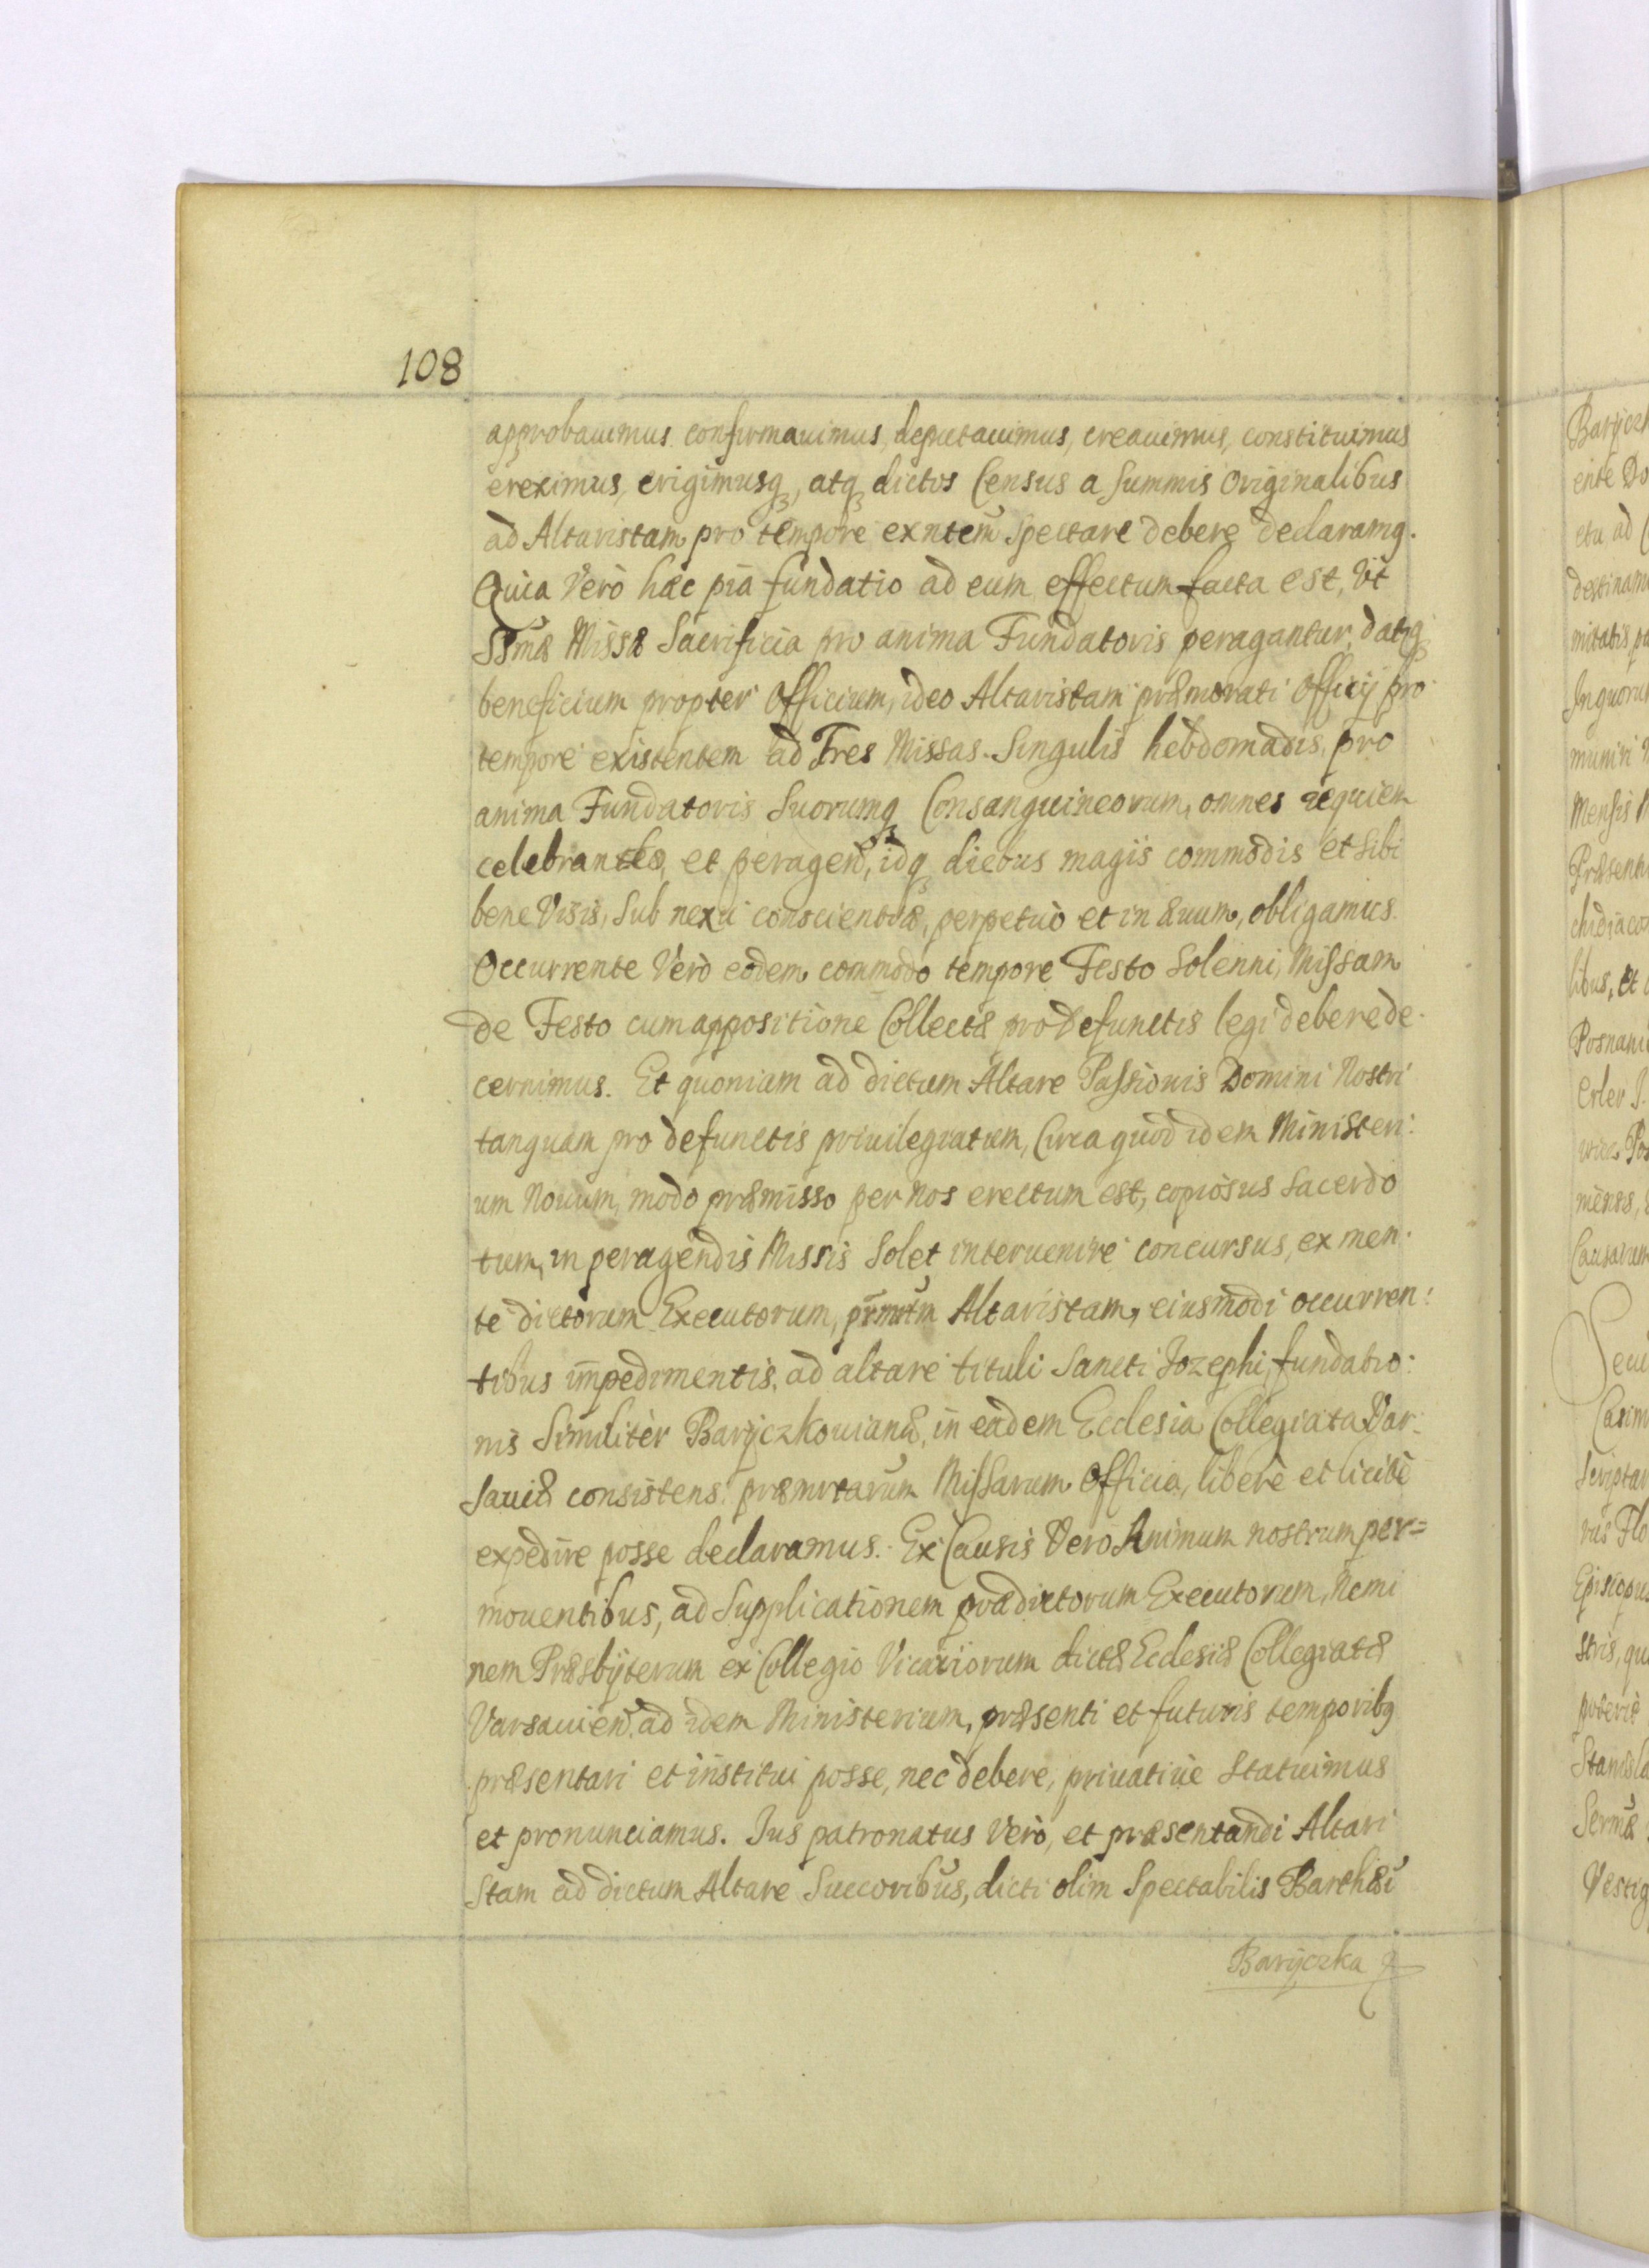 108
approbauimus confirmauimus, deputauimus, creauimus, constituimus
ereximus, erigimusq, atq dictos Census a Summis Originalibus
ad Altaristam pro tempore exntem spectare debere declaramq.
Quia Verò hæc pia fundatio ad eum effectum facta est, Vt
SSmæ Missæ Sacrificia pro anima Fundatoris peragantur, datq
beneficium propter Officium, ideo Altaristam præmorati Officij pro
tempore existentem ad Tres Missas Singulis hebdomadis, pro
anima Fundatoris Suorumq Consanguineorum, omnes requiem
celebrandas, et peragen, idq diebus magis commodis et Sibi
bene Visis, Sub nexu conscientiæ, perpetuò et in æuum, obligamus.
Occurrente Verò eodem commodo tempore Festo Solenni, Missam
de Festo cum appositione Collectæ pro Defunctis legi debere de
cernimus. Et quoniam ad dictum Altare Passionis Domini Nostri
tanquam pro defunctis priuilegiatum, Circa quod idem Ministeri:
um Nouum, modo præmisso per nos erectum est, copiosus Sacerdo
tum, in peragendis Missis Solet interuenire concursus, ex men
te dictorum Executorum, Altaristam, eiusmodi occurren:
tibus impedimentis, ad altare tituli Sancti Jozephi, fundatio:
nis Similitèr Baryczkouianæ, in eadem Ecclesia Collegiata Var:
sauiæ consistens, præmrtarum Missarum Officia, liberè et licitè
expedire posse declaramus. Ex Causis Vero Animum nostrum per=
mouentibus, ad Supplicationem prædictorum Executorum, Nemi
nem Præsbyterum ex Collegio Vicariorum dictæ Ecclesiæ Collegiatæ
Varsauien ad idem Ministerium, præsenti et futuris temporibq
præsentari et institui posse, nec debere, priuatiuè Statuimus
et pronunciamus. Jus patronatus Verò, et præsentandi Altari
Stam ad dictum Altare Succoribus, dicti olim Spectabilis Barthæi
Baryczka